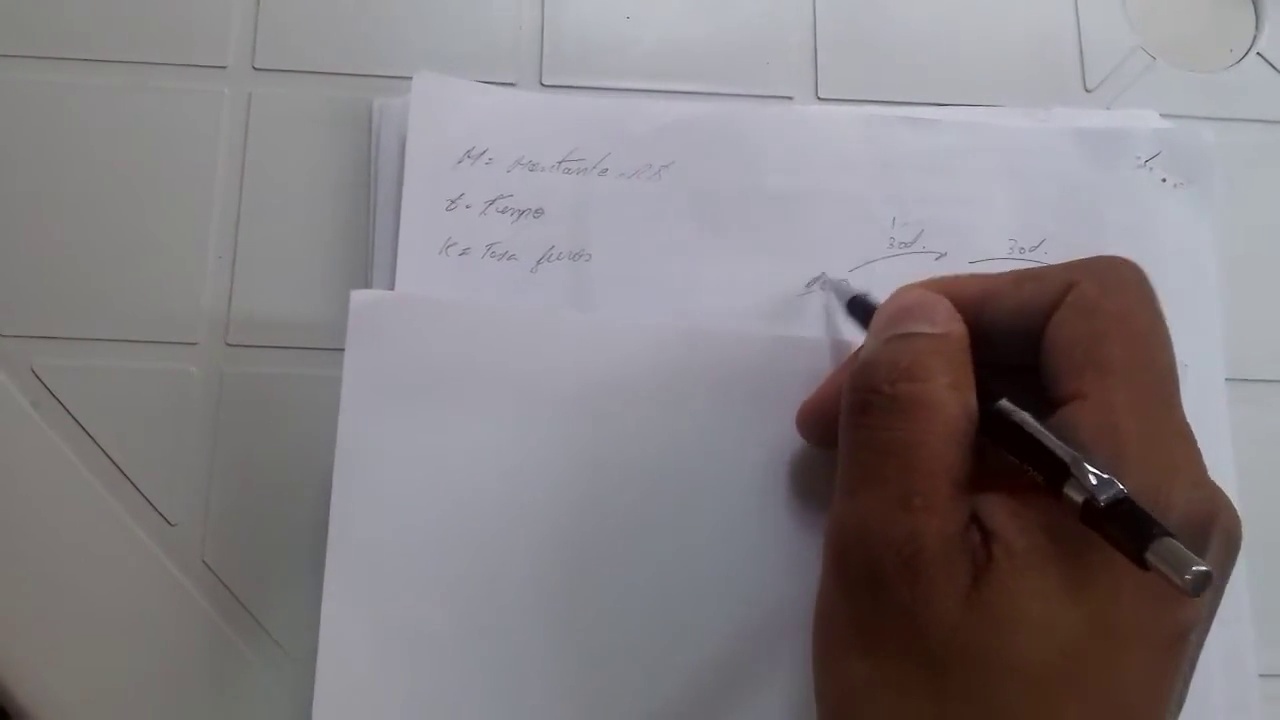 M= Montante R$
t= tiempo
K= Tasa juros
30d. 30d.